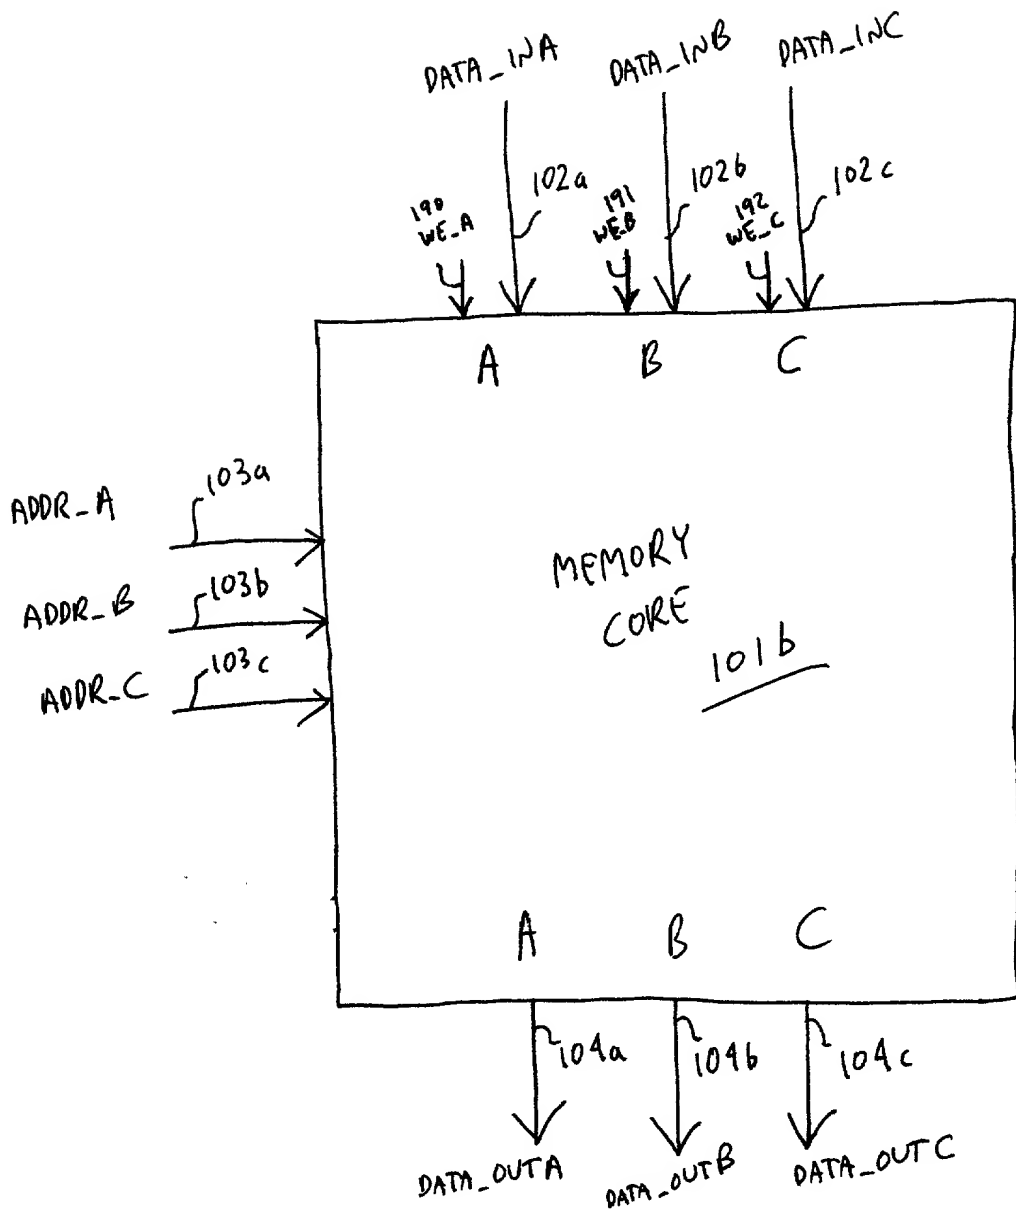 DATA_INA
DATA_INB
DATA_INC
102a
102b
102c
190
WE_A
191
WE_B
192
WE_C
A
B
C
ADDR_A
103a
ADDR_B
103b
ADDR_C
103c
MEMORY
CORE
101b
A
B
C
104a
104b
104c
DATA_OUTA
DATA_OUTB
DATA_OUTC